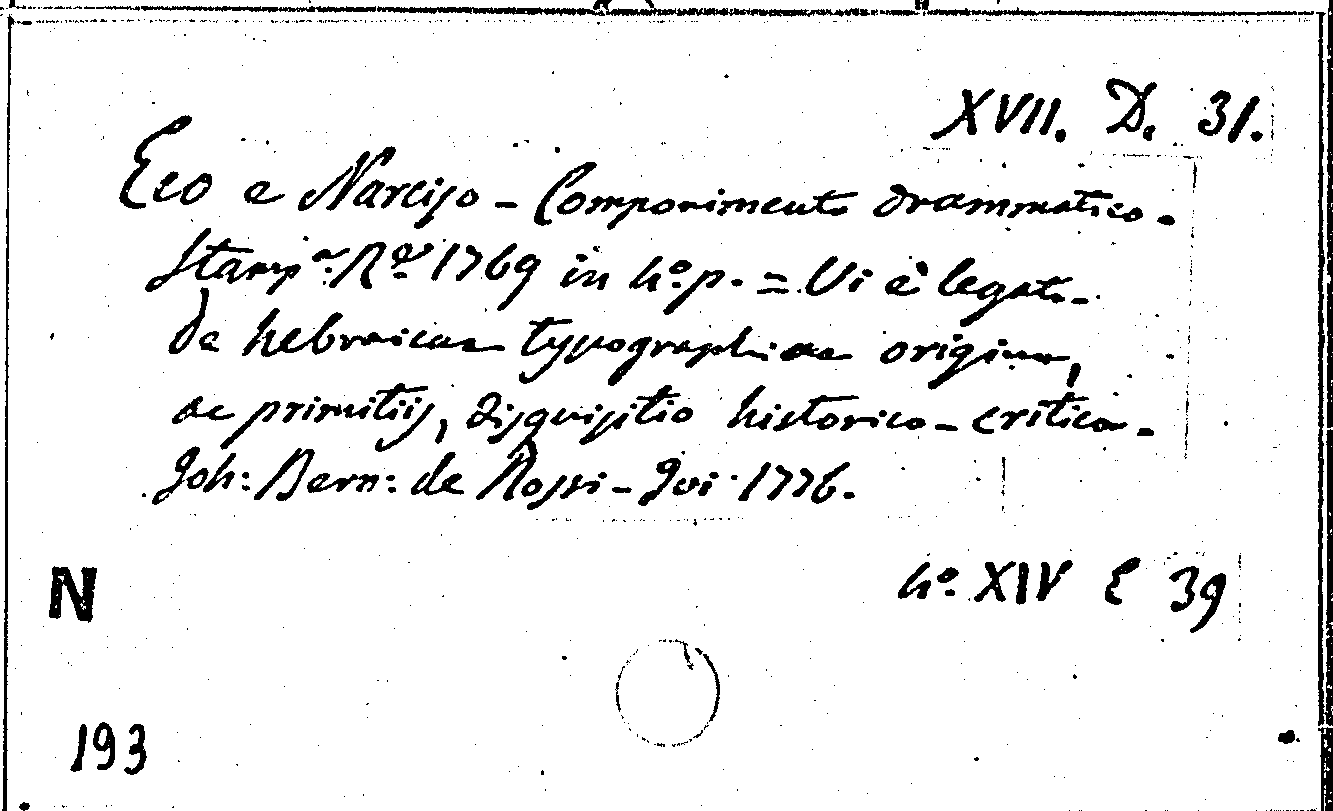 XVII. D. 31.
Eco e Narciso - Componimento drammatico.
Stamp.a R.e 1769 in 4.o p. = Vi è legato.
De hebraicae typographiae origine,
ac primitiis, disquisitio historico-critica.
Joh: Bern: de Rossi - Ivi 1776.
4.o XIV E 39
N
193